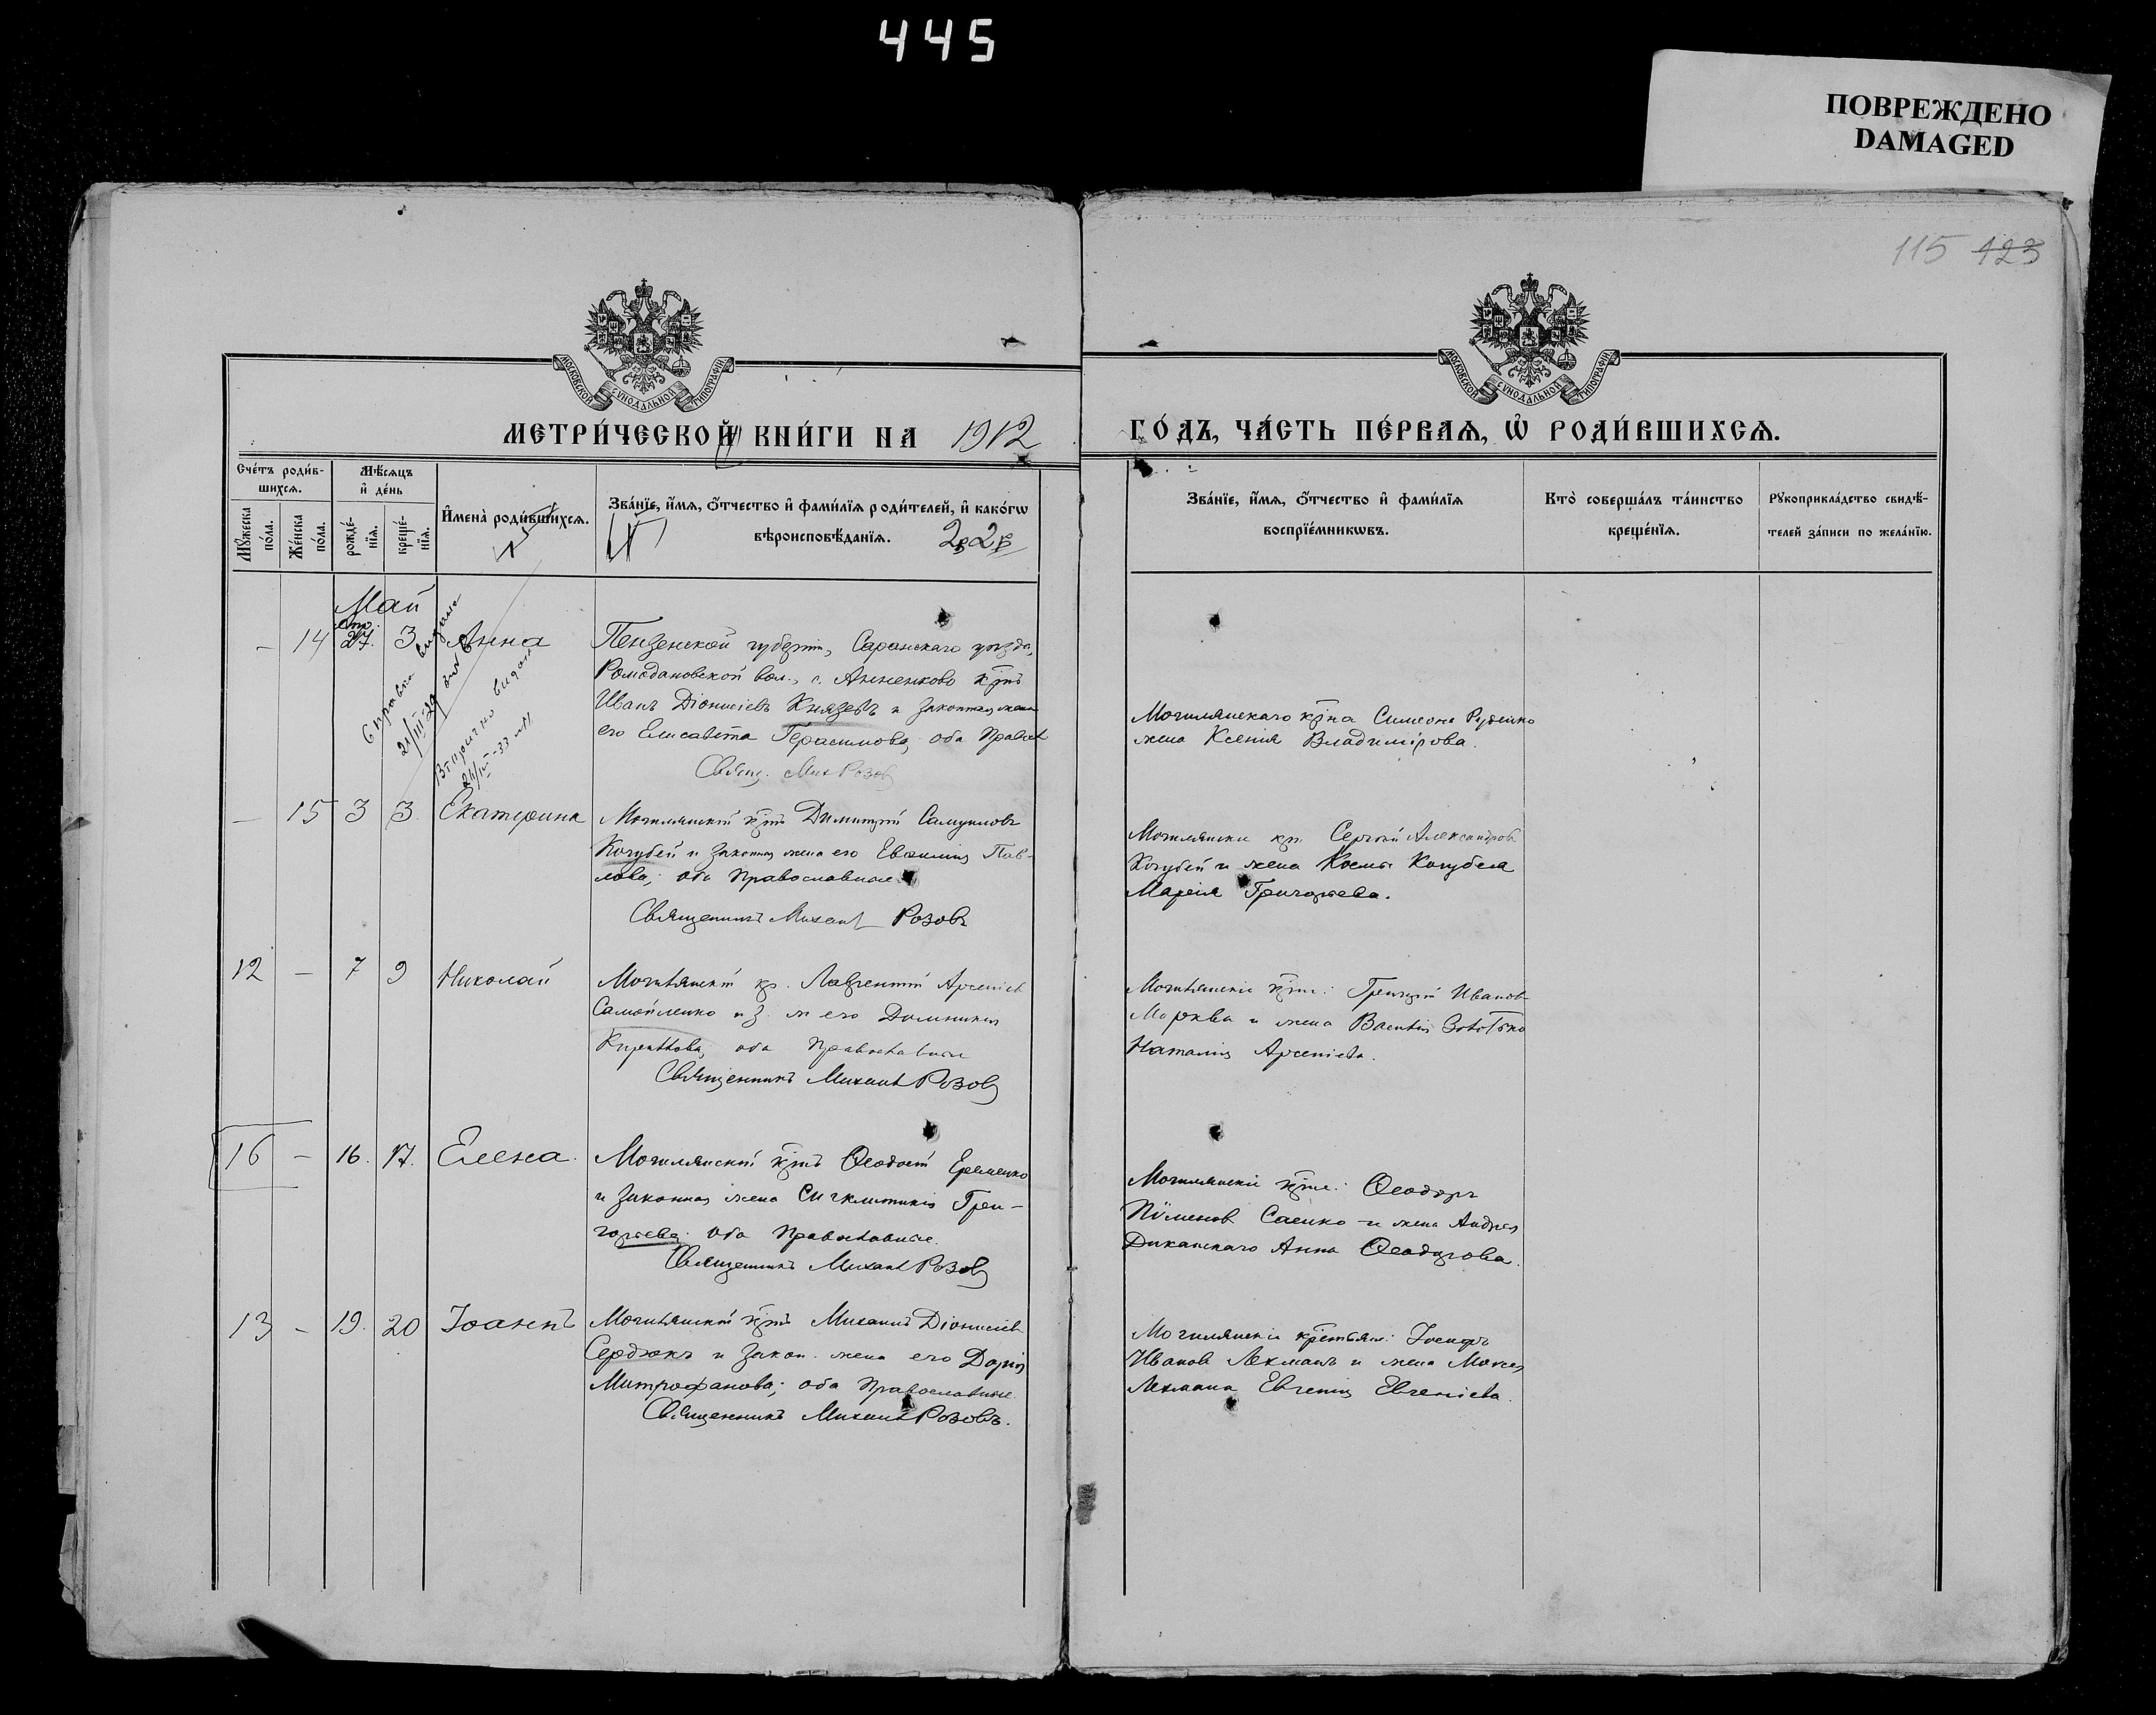 445
ПОВРЕЖДЕНО
DAMAGED
115 123
МОСКОВСКОЙ СѴНОДАЛЬНОЙ ТИПОГРАФІИ
МОСКОВСКОЙ СѴНОДАЛЬНОЙ ТИПОГРАФІИ
МЕТРИ́ЧЕСКОЙ КНИ́ГИ НА 1912
ГО́ДЪ, ЧА́СТЬ ПЕ́РВАѦ, Ѡ҆ РОДИ́ВШИХСѦ.
Сче́тъ роди́вшихсѧ.
Мꙋ́жеска по́ла.
Же́нска по́ла.
Мѣ́сѧцъ и҆ де́нь
рожде́нїѧ.
креще́нїѧ.
И҆мена̀ роди́вшихсѧ.
Зва́нїе, и҆́мѧ, ѻ҆́тчество и҆ фами́лїѧ роди́телей, и҆ како́гѡ
вѣроисповѣ́данїѧ.
Зва́нїе, и҆́мѧ, ѻ҆́тчество и҆ фами́лїѧ
воспрїе́мникѡвъ.
Кто̀ соверша́лъ та́инство
креще́нїѧ.
Рꙋкоприкла́дство свидѣ́-
телей за́писи по жела́нїю.
Май
Апр.
– 14 27. 3 Анна
Справка выдана
21/III 29
Вторично выдан
24/IV-33
Пензенской губерніи, Саранскаго уѣзда,
Ромодановской вол., с. Анненково кр-нъ
Иванъ Діонисіевъ Князевъ и законная жена
его Елисавета Герасимова, оба Правосл
Свящ. Мих Розов
Могилянскаго кр-на Симеона Руденко
жена Ксенія Владимірова.
– 15 3 3. Екатерина
Могилянскій кр-нъ Димитрій Самуиловъ
Кочубей и законная жена его Евфимія Пав-
лова; оба Православные
Священникъ Михаил Розовъ
Могилянскіи кр. Сергѣй Александров
Кочубей и жена Космы Кочубея
Марія Григорьева.
12 – 7 9 Николай
Могилянскій кр. Лаврентій Арсеніев
Самойленко и з. ж его Домникія
Кириллова, оба Православные
Священникъ Михаил Розов
Могилянскіе кр-не: Григорій Иванов
Морква и жена
Наталія Арсеніева.
16 – 16. 17. Елена.
Могилянскій кр-нъ Ѳеодосій Еременко
и законная жена Сигклитикія Гри-
горьева; оба Православные.
Священникъ Михаил Розов
Могилянскіе кр-не: Ѳеодоръ
Пименов Саенко и жена Андрея
Диканскаго Анна Ѳеодорова.
13 – 19. 20 Іоаннъ
Могилянскій кр-нъ Михаилъ Діонисіев
Сердюкъ и закон. жена его Дарія
Митрофанова; оба Православные.
Священникъ Михаил Розовъ.
Могилянскіе крестьяне: Іосифъ
Иванов Лехманъ и жена Моисея
Лехмана Евгенія Евгеніева.